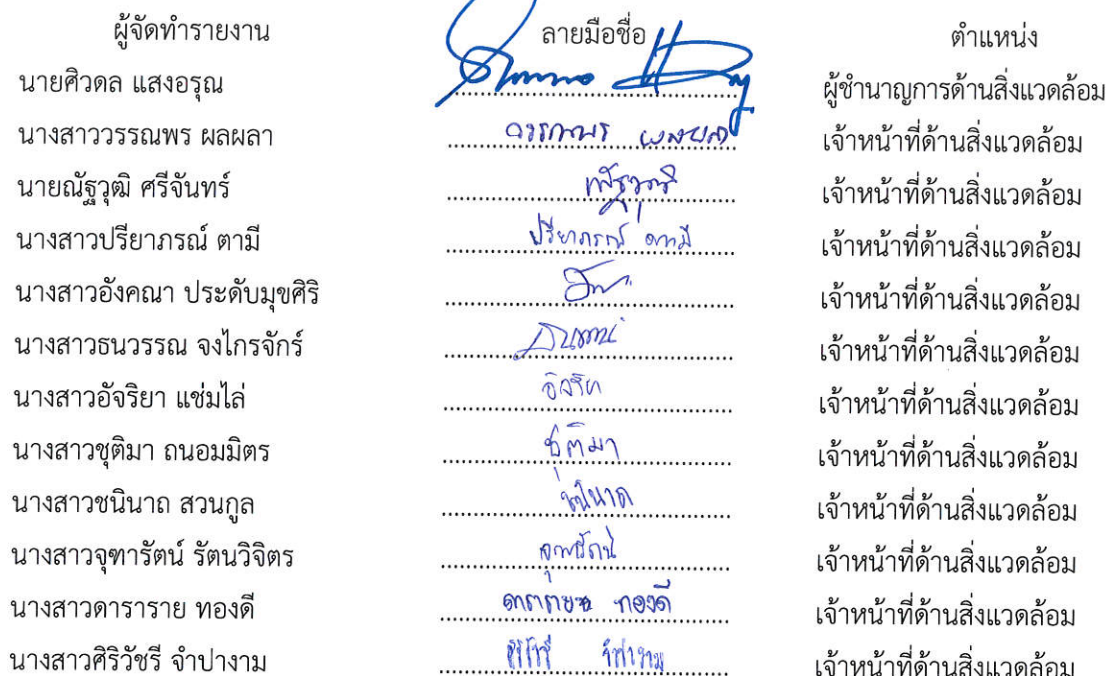 ผู้จัดทำรายงาน ลายมือชื่อ ตำแหน่ง
นายศิวดล แสงอรุณ ผู้ชำนาญการด้านสิ่งแวดล้อม
นางสาววรรณพร ผลผลา วรรณพร ผลผลา เจ้าหน้าที่ด้านสิ่งแวดล้อม
นายณัฐวุฒิ ศรีจันทร์ ณัฐวุฒิ เจ้าหน้าที่ด้านสิ่งแวดล้อม
นางสาวปรียาภรณ์ ตามี ปรียาภรณ์ ตามี เจ้าหน้าที่ด้านสิ่งแวดล้อม
นางสาวอังคณา ประดับมุขศิริ เจ้าหน้าที่ด้านสิ่งแวดล้อม
นางสาวธนวรรณ จงไกรจักร์ เจ้าหน้าที่ด้านสิ่งแวดล้อม
นางสาวอัจริยา แช่มไล่ อัจริยา เจ้าหน้าที่ด้านสิ่งแวดล้อม
นางสาวชุติมา ถนอมมิตร ชุติมา เจ้าหน้าที่ด้านสิ่งแวดล้อม
นางสาวชนินาถ สวนกูล ชนินาถ เจ้าหน้าที่ด้านสิ่งแวดล้อม
นางสาวจุฑารัตน์ รัตนวิจิตร จุฑารัตน์ เจ้าหน้าที่ด้านสิ่งแวดล้อม
นางสาวดาราราย ทองดี ดาราราย ทองดี เจ้าหน้าที่ด้านสิ่งแวดล้อม
นางสาวศิริวัชรี จำปางาม ศิริวัชรี จำปางาม เจ้าหน้าที่ด้านสิ่งแวดล้อม